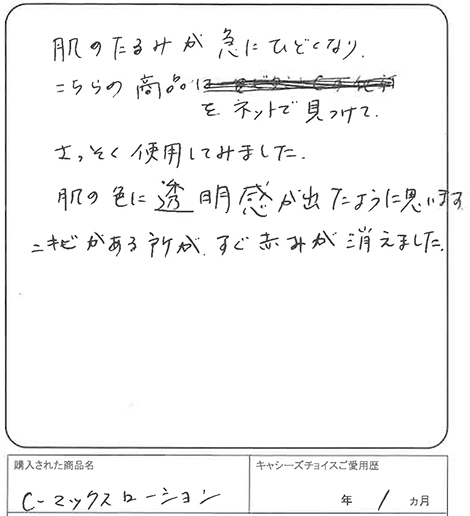 肌のたるみが急にひどくなり、
こちらの商品
をネットで見つけて、
さっそく使用してみました。
肌の色に透明感が出たように思います
ニキビがある所が、すぐ赤みが消えました。
購入された商品名
キャシーズチョイスご愛用歴
C-マックスローション
年 1 ヵ月